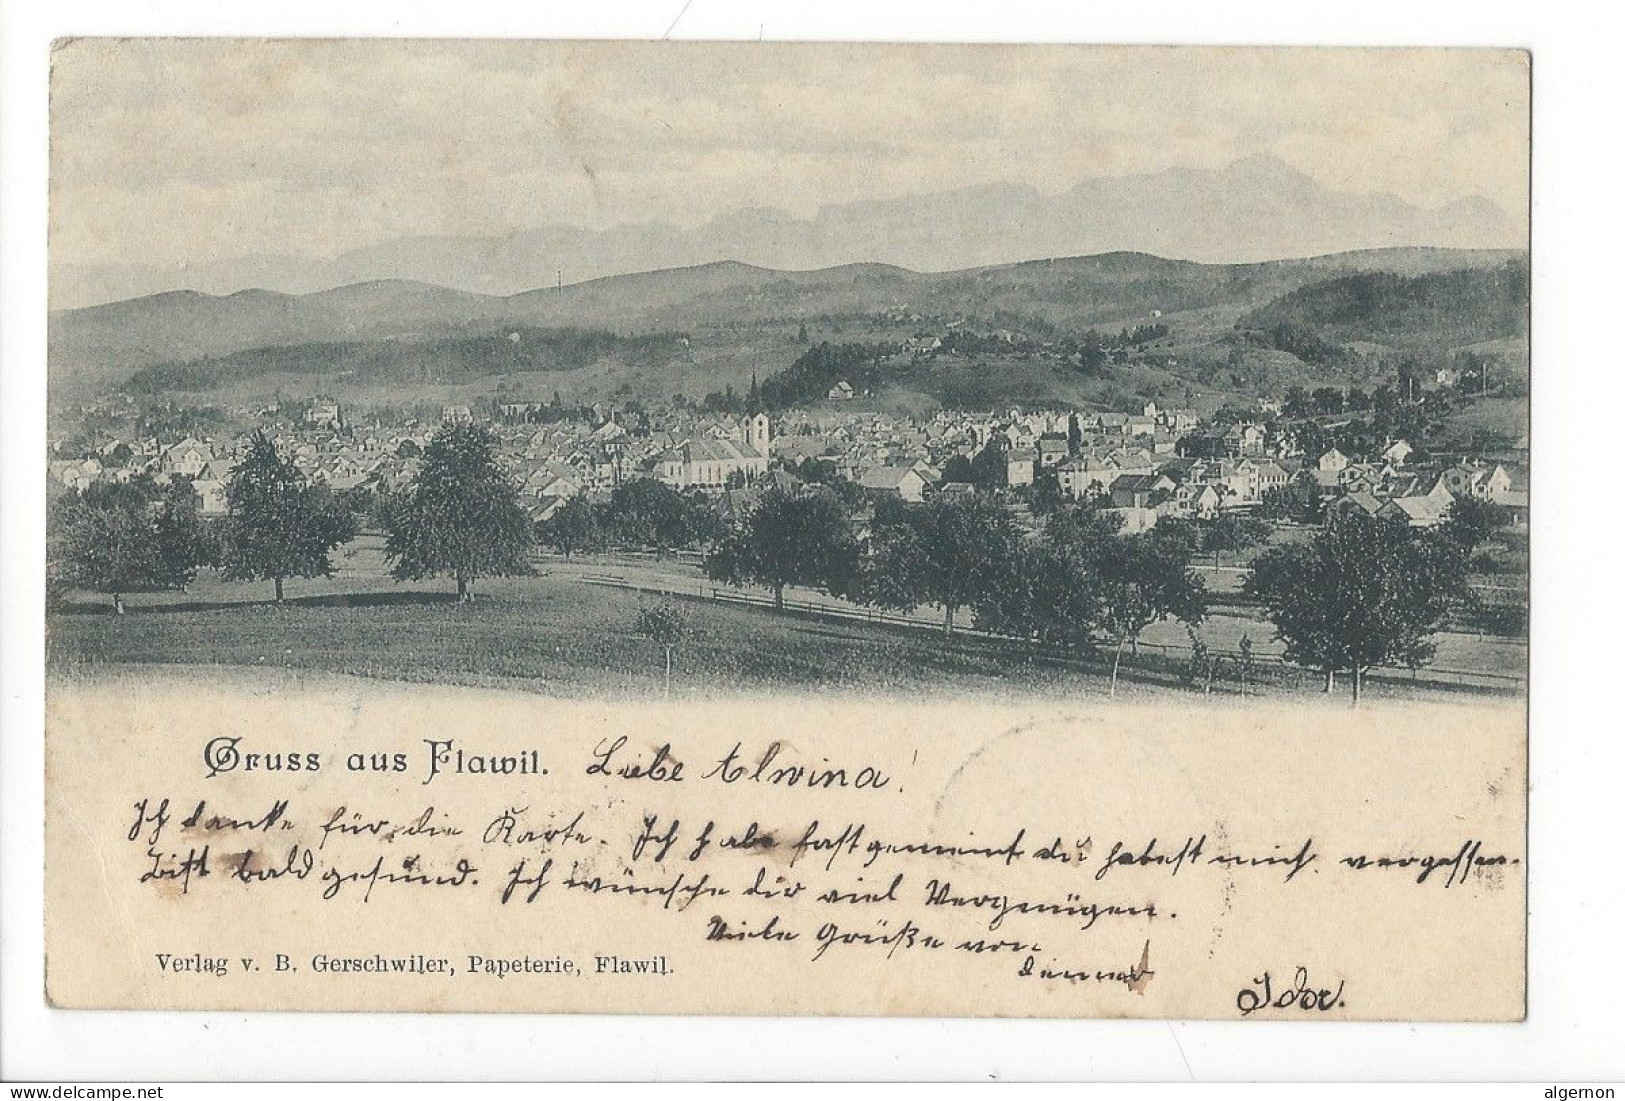 Gruss aus Flawil. Liebe Alwina!
Ich danke für die Karte. Ich habe fast gemeint du habest mich vergessen.
Bist bald gesund. Ich wünsche dir viel Vergenügen.
Viele Grüße von
deiner
Verlag v. B. Gerschwiler, Papeterie, Flawil.
delcampe.net
algernon